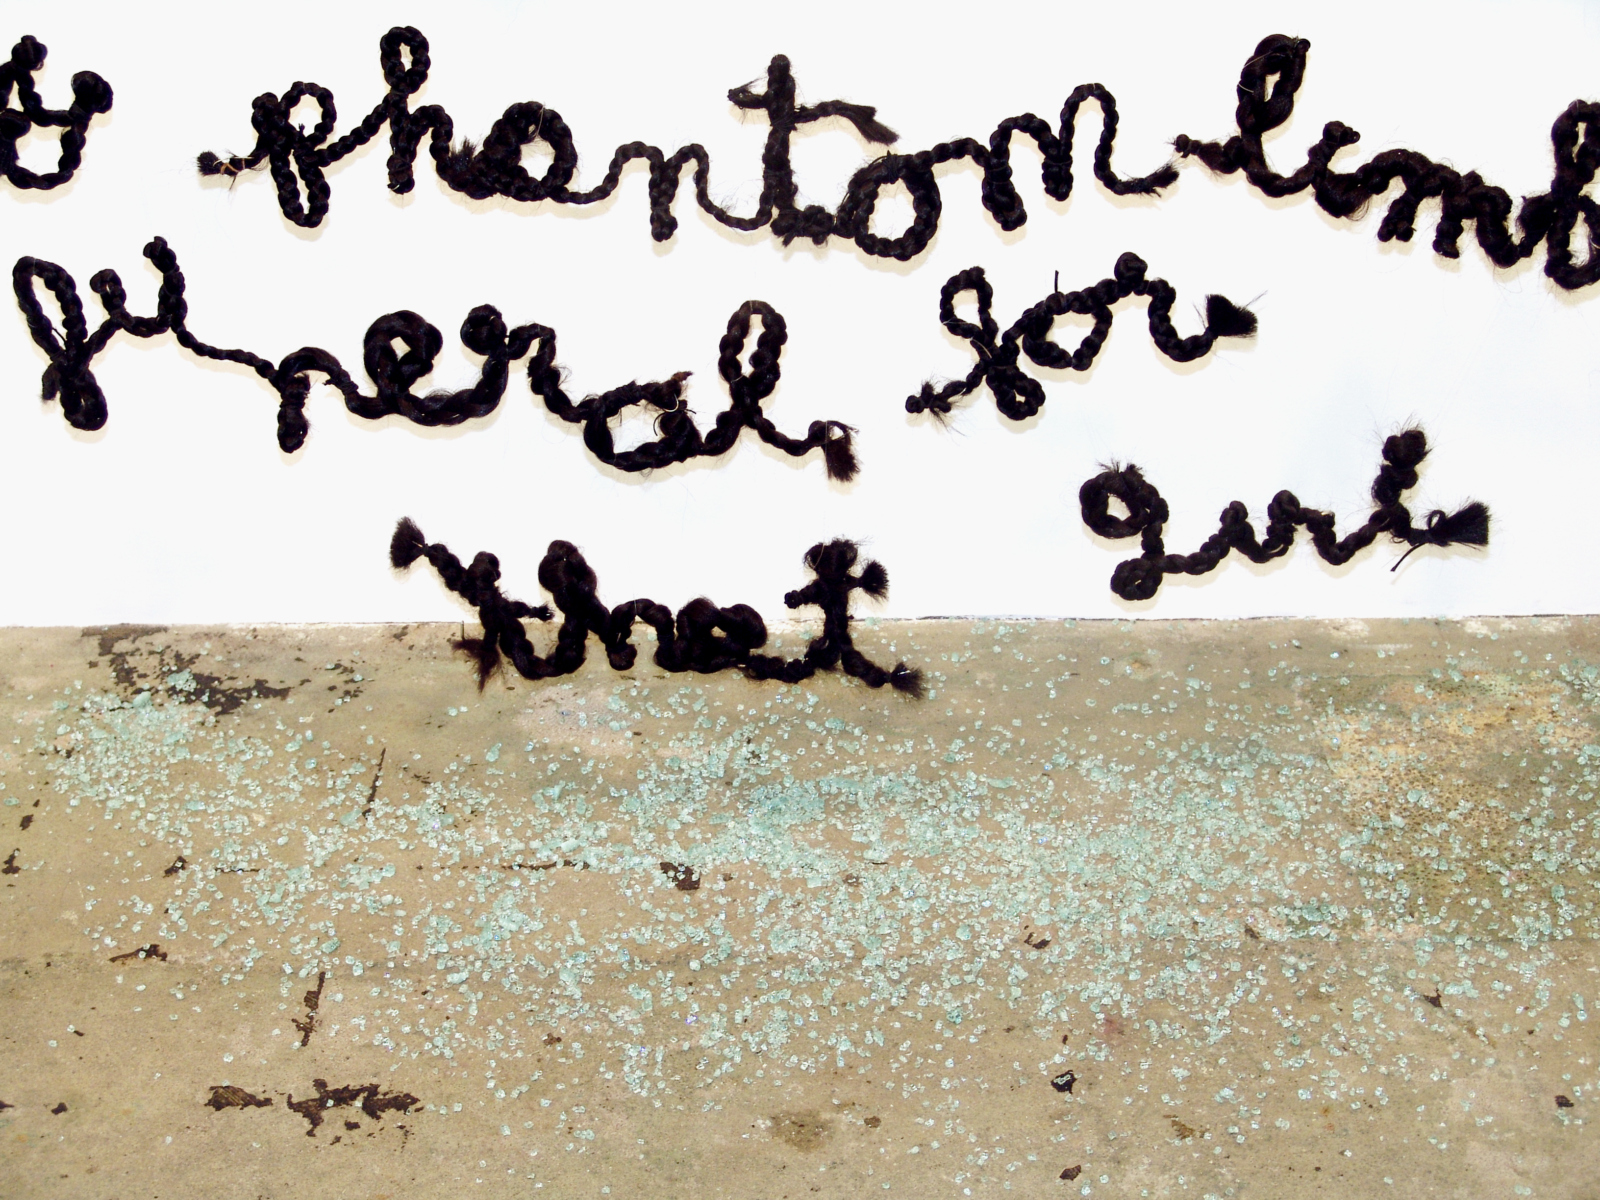 phantom limb
funeral for
girl
that